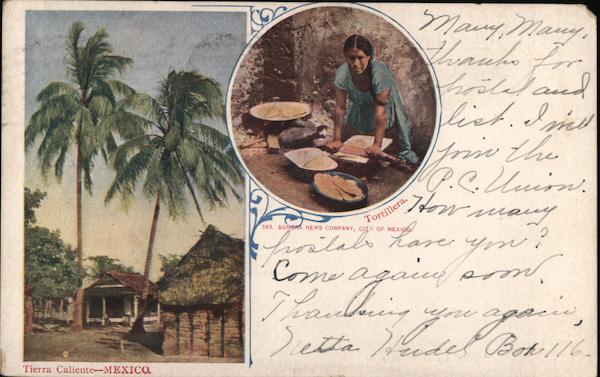 Many, Many,
thanks for
postal and
list. I will
join the
P. C. Union.
How many
postals have you?
Come again soon.
Thanking you again,
Netta Box 116.
Tortillera.
583. SONORA NEWS COMPANY, CITY OF MEXICO.
Tierra Caliente—MEXICO.